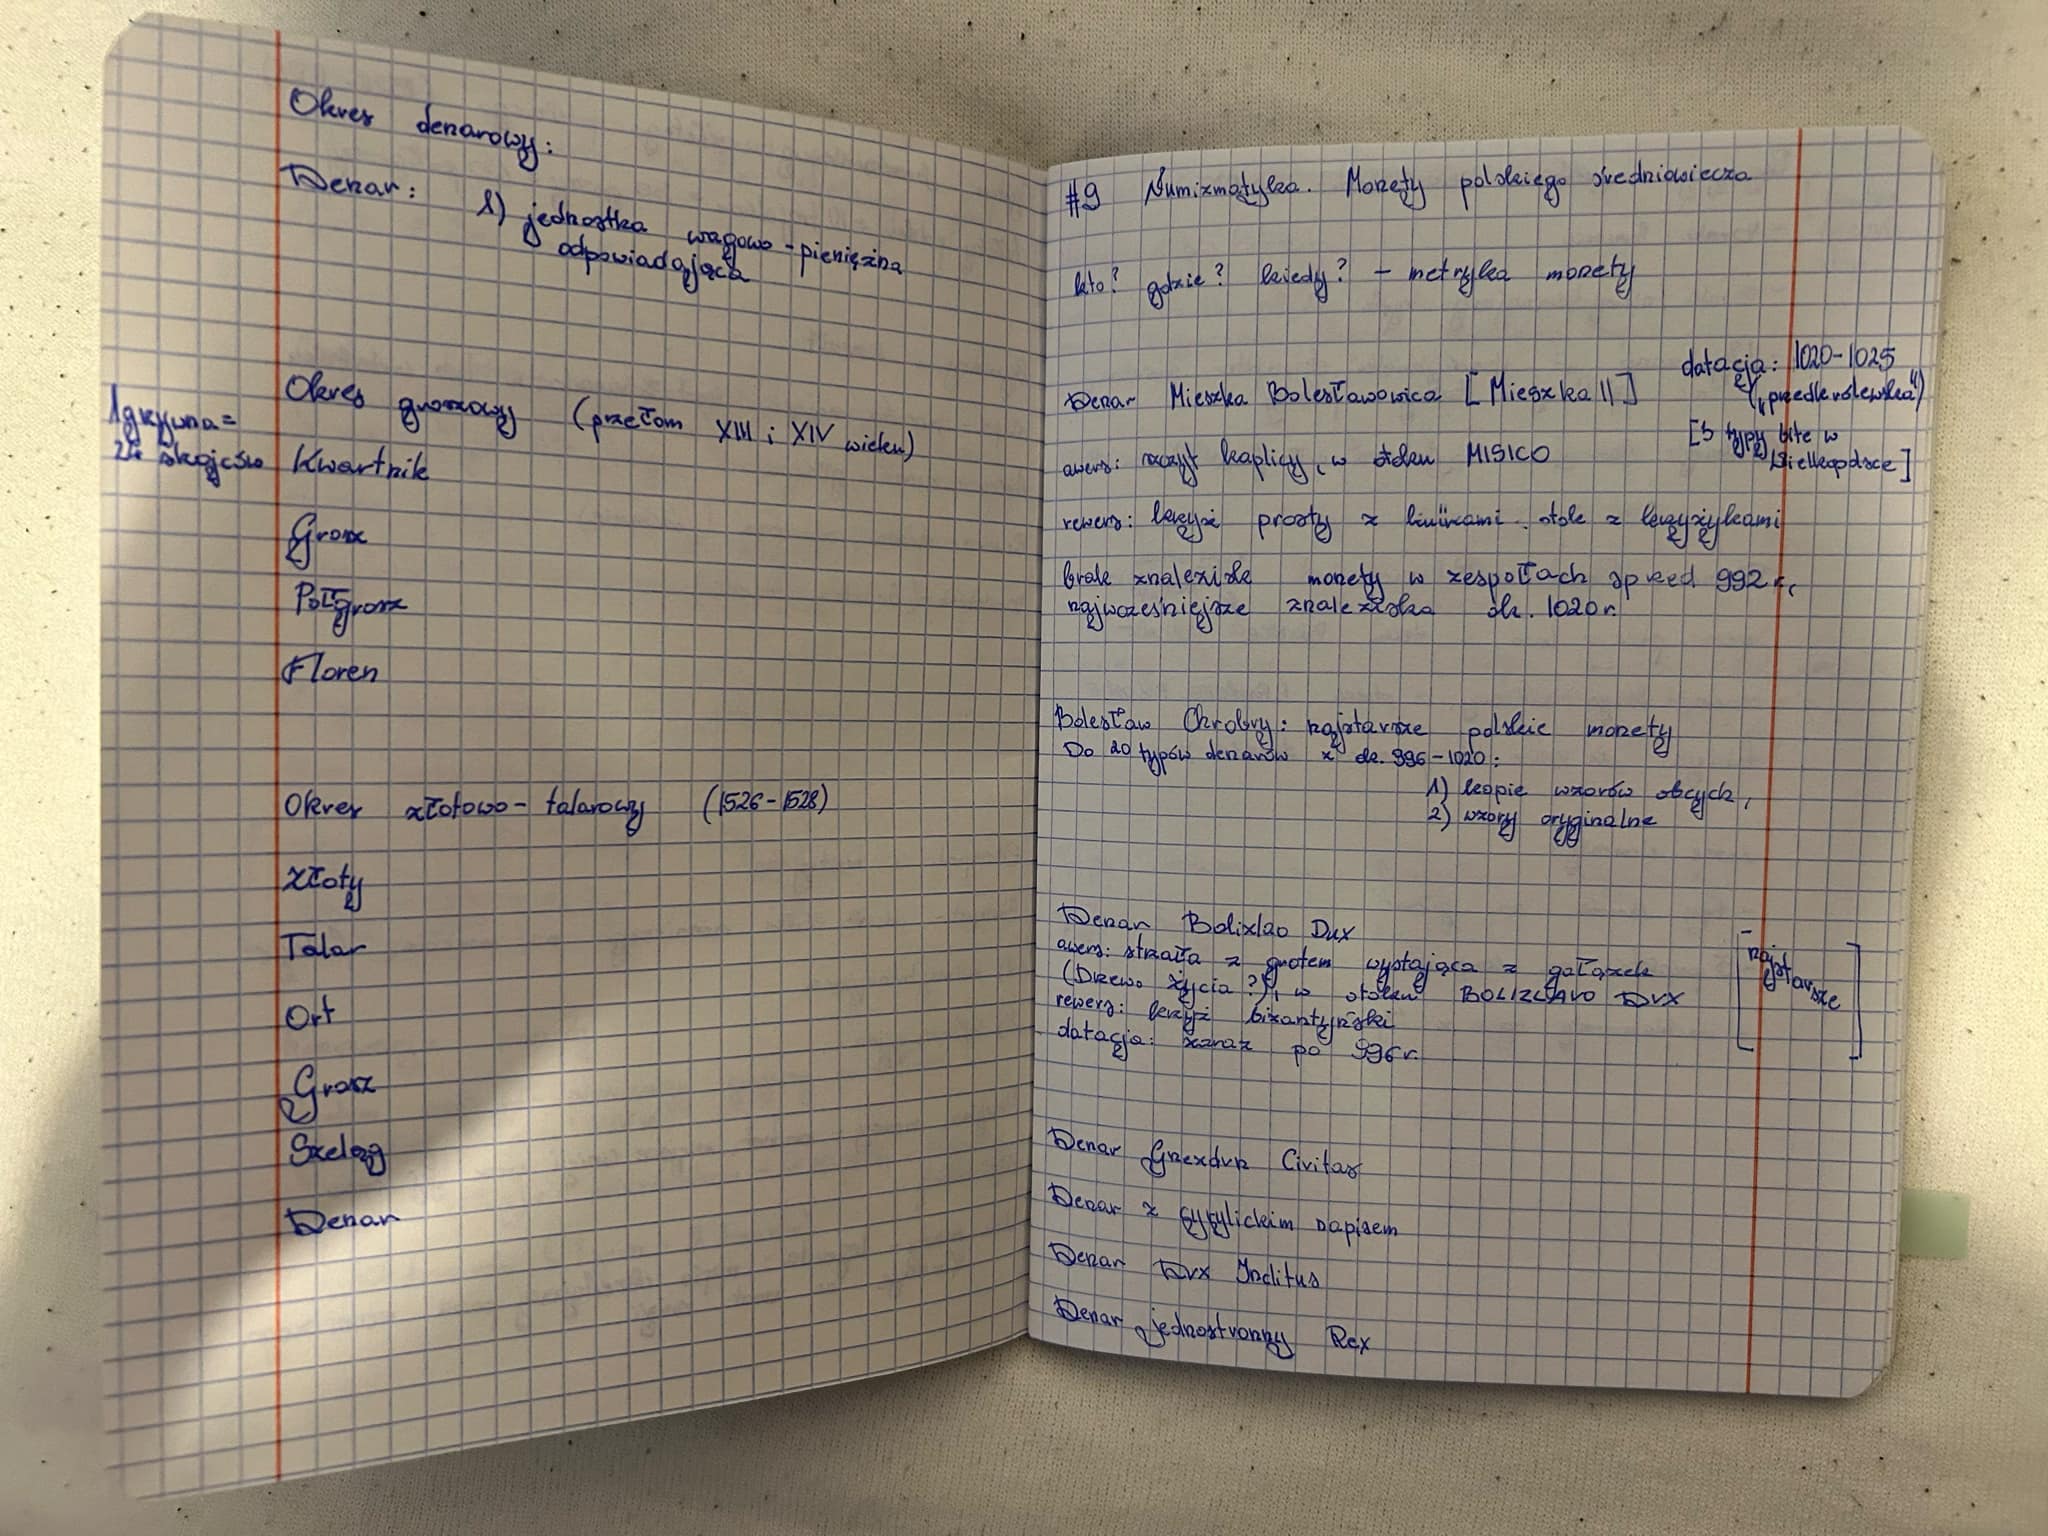 Okres denarowy:
Denar: 1) jednostka wagowo-pieniężna
odpowiadająca
Okres groszowy (przełom XIII i XIV wieku)
1 grzywna =
24 skojców
Kwartnik
Grosz
Półgrosz
Floren
Okres złotowo-talarowy (1526-1528)
Złoty
Talar
Ort
Grosz
Szeląg
Denar
#9 Numizmatyka. Monety polskiego średniowiecza
kto? gdzie? kiedy? - metryka monety
Denar Mieszka Bolesławowica [Mieszka II]
datacja: 1020-1025
("przedkrolewska")
[3 typy bite w
Wielkopolsce]
awers: szczyt kaplicy, w otoku MISICO
rewers: krzyż prosty z kulkami. otok z krzyżykami
brak znalezisk monety w zespołach sprzed 992 r.,
najwcześniejsze znaleziska ok. 1020 r.
Bolesław Chrobry: najstarsze polskie monety
Do 20 typów denarów z ok. 996-1020:
1) kopie wzorów obcych,
2) wzory oryginalne
Denar Bolizlao Dux
awers: strzała z grotem wystająca z gałązek
(Drzewo Życia?), w otoku BOLIZLAVO DVX
rewers: krzyż bizantyński
datacja: zaraz po 996 r.
[najstarsze]
Denar Gnezdvn Civitas
Denar z cyrylickim napisem
Denar Dvx Inclitus
Denar jednostronny Rex